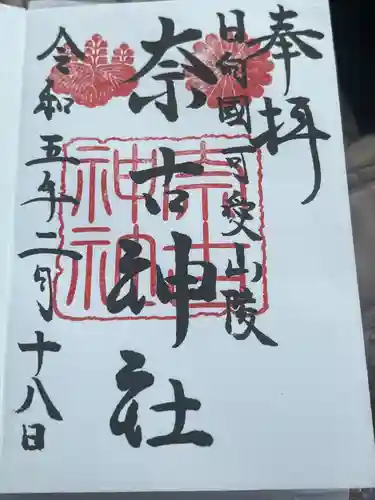 奉拝
日向國可愛山陵
奈古神社
令和五年二月十八日
奈古
神社